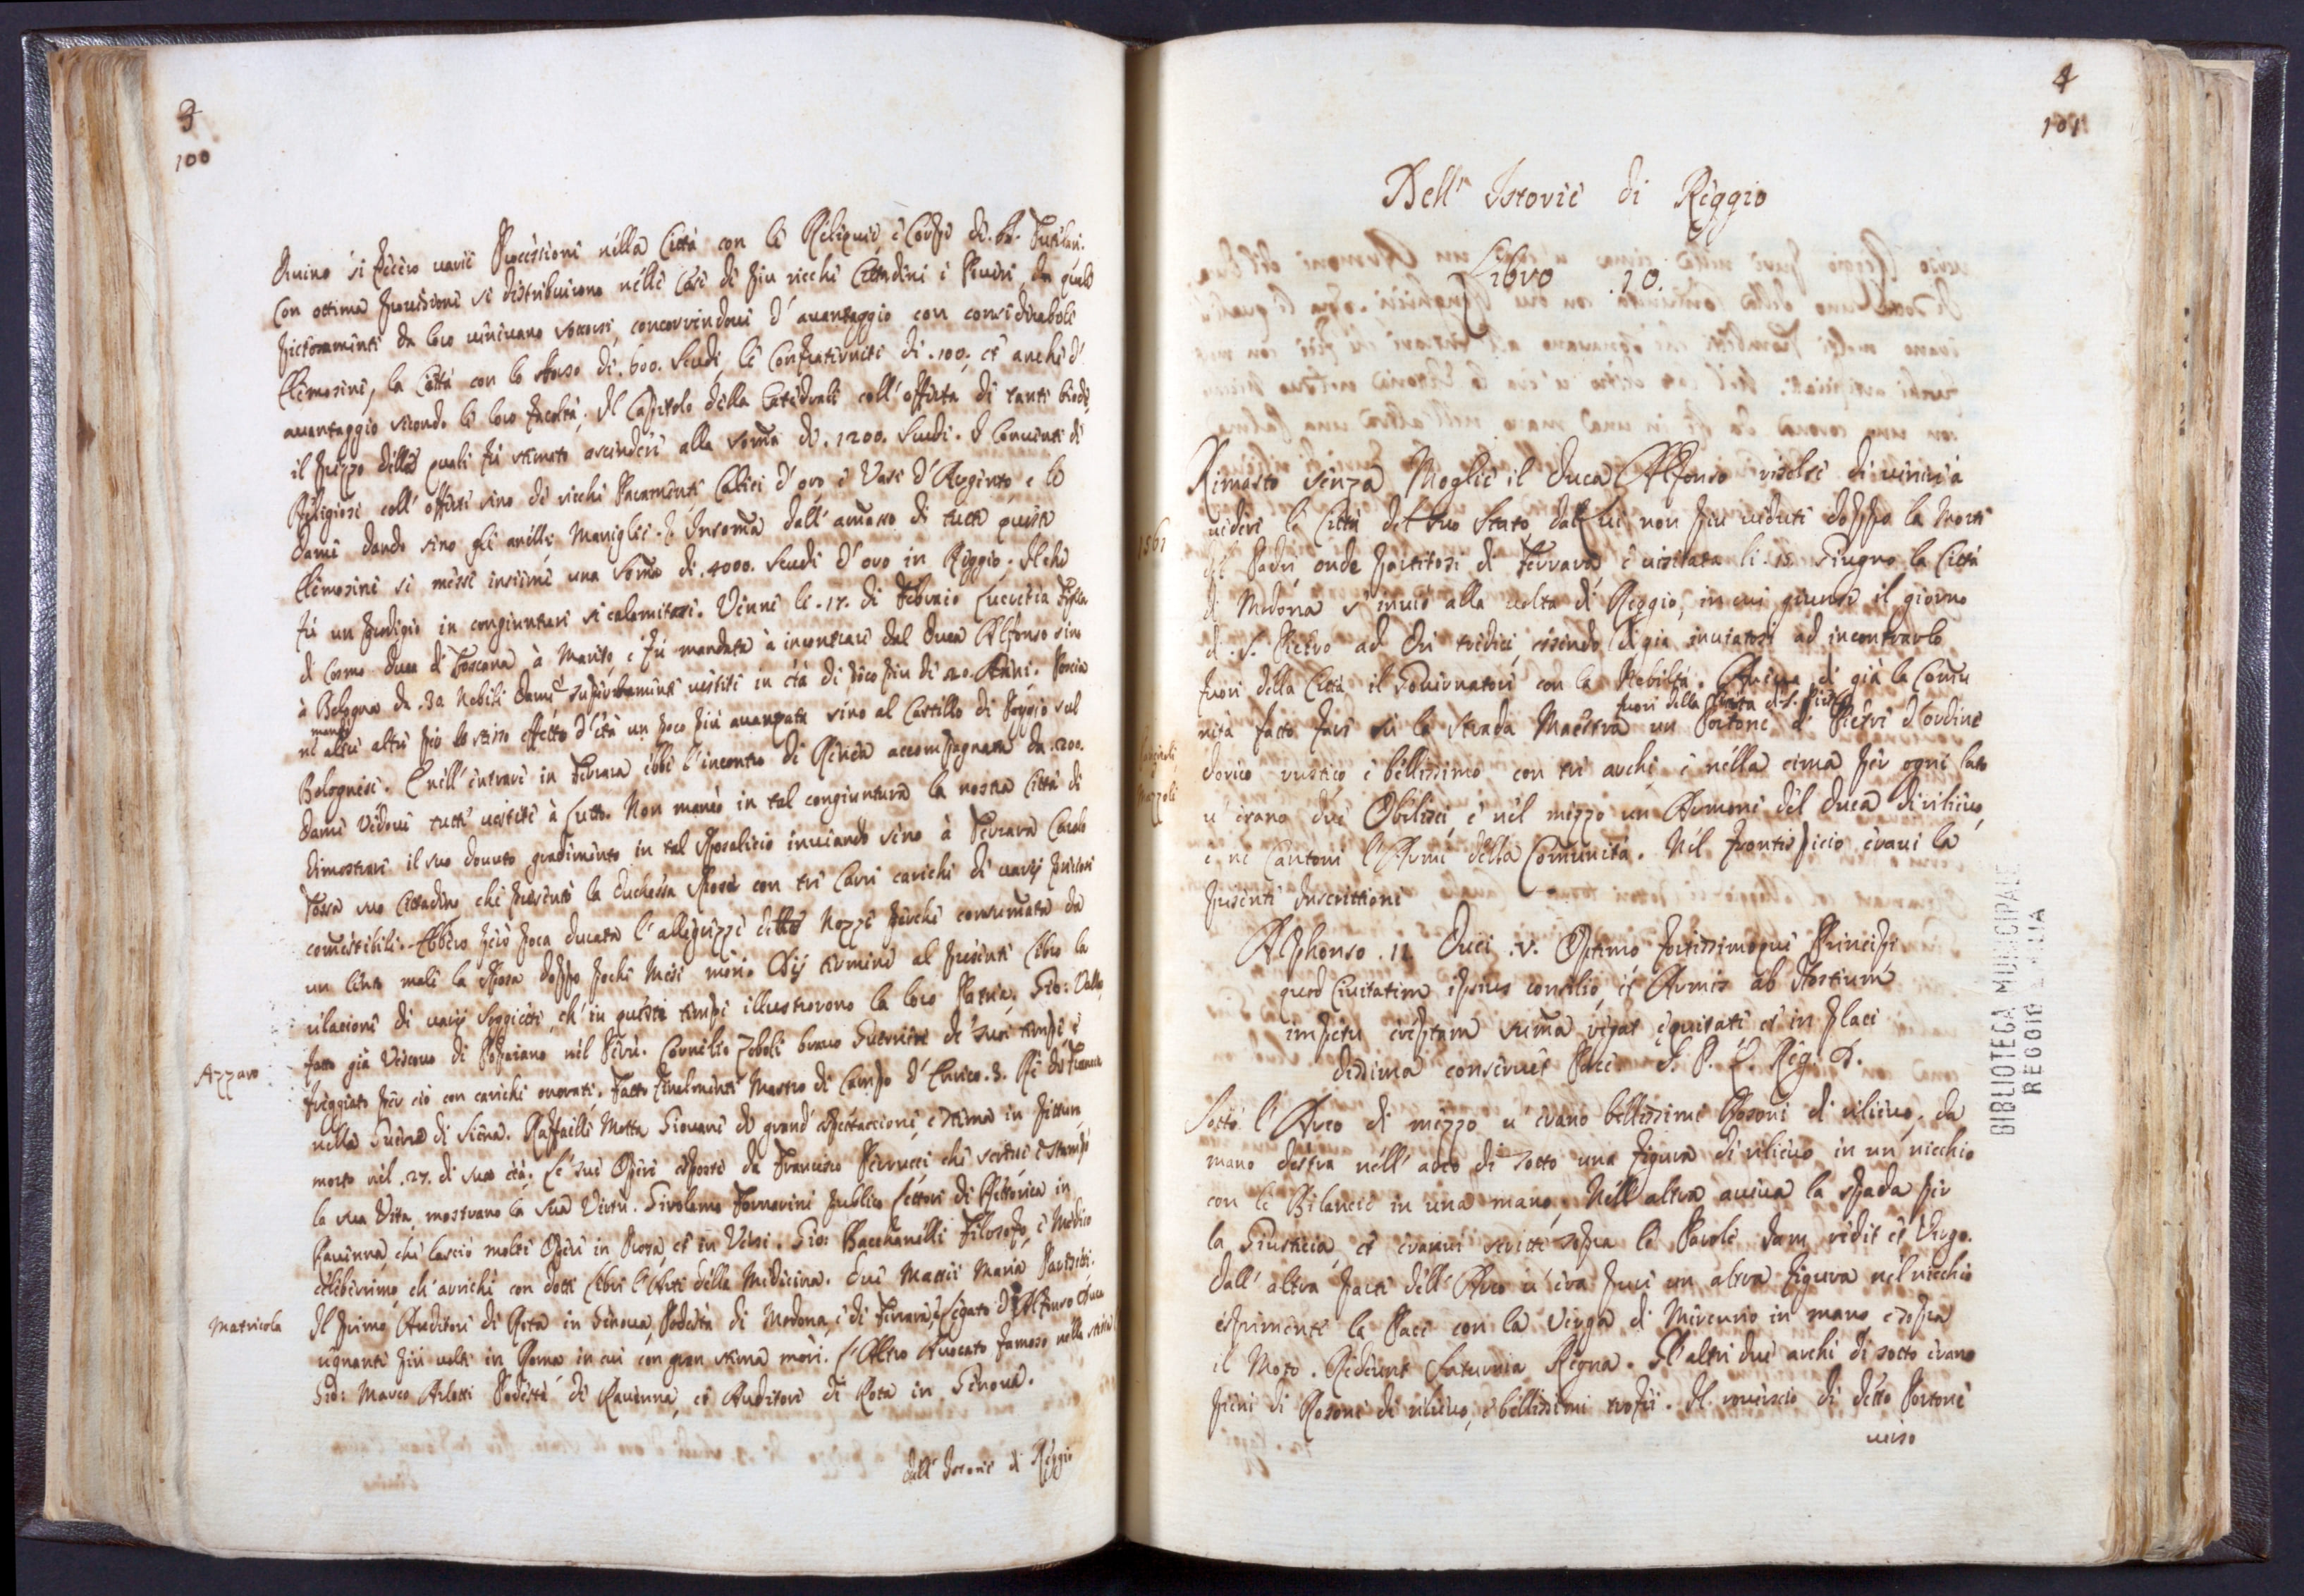 3
100
Divino si fecero varie Processioni nella Città con le Reliquie, e Corpi di. SS. Tutelari.
Con ottima provisione si distribuirono nelle Case di piu ricchi Cittadini i Poveri, da quali
pietosamente da loro venivano soccorsi, concorrendovi d'avantaggio con considerabili
Elemosine, la Città con lo sborso di .600. Scudi, le Confraternite di .100. et anche d'
avantaggio secondo le loro facoltà; Il Capitolo della Catedrale coll'offerta di tante biade,
il prezzo delle quali fù stimato ascendere alla soma di .1200. Scudi. I Conventi di
Religiosi coll'offerte sino di ricchi Paramenti Calici d'oro e Vasi d'Argento, e le
Dame dando sino gli anelli, Maniglie. Insoma dall'amasso di tutte queste
Elemosine si messe insieme una soma di .4000. Scudi d'oro in Reggio. Il che
fù un prodigio in congiunture si calamitose. Venne li .17. di Febraio Lucretia Figlia
di Cosmo Duca di Toscana à Marito, e fù mandata à incontrare dal Duca Alfonso sino
à Bologna da .30. Nobili Dame superbamente vestite in età di poco piu di .20. Anni.
mancò
ne altre per lo stesso effetto d'età un poco più avanzate sino al Castello di Poggio sul
Bolognese. E nell'entrare in Ferrara ebbe l'incontro di Renea accompagnata da .200.
Dame Vedove tutte vestite à Lutto. Non mancò in tal congiuntura la nostra Città di
dimostrare il suo dovuto gradimento in tal Sposalicio inviando sino à Ferrara Carlo
Fossa suo Cittadino che presentò la Duchessa Sposa con tre Carri carichi di varij
comestibili. Ebbero però poca durata l'allegrezze delle Nozze perche consumata da
un lento male la Sposa doppo pochi Mesi morì. Dij termine al presente Libro la
relacione di varij Soggetti, ch'in questi tempi illustrorono la loro Patria. Gio:
fatto già Vescovo di Popaiano nel Perù. Cornelio Zoboli bravo Guerriere de' suoi tempi e
Azzaro
freggiato per ciò con carichi onorati. Fatto finalmente Mastro di Campo d'Enrico .3. Rè di Francia
nella Guerra di Siena. Raffaelle Motta Giovane di grand'aspettaccione, e stima in Pittura,
morto nel .27. di sua età; le sue Opere esposte da Francesco Perrucci, che scrisse e stampò
la sua Vita, mostrano la sua Virtù. Girolamo Fornarini publico Lettore di Rettorica in
Ravenna, che lasciò molte Opere in Prosa, et in Versi. Gio: Bacchanelli Filosofo, e Medico
celeberrimo, ch'arrichì con dotti Libri l'Arte della Medicina. Due Mattei Maria
Matricola
Il primo Auditore di Rota in Genova, Podestà di Modona, e di Ferrara, e Legato di Alfonso Duca
ugnante più volte in Roma in cui con gran stima morì. L'Altro Avocato famoso nella
Gio: Marco Arlotti Podestà di Ravenna, et Auditore di Rota in Genova.
dell' Istorie di Reggio
4
101
Dell' Istorie di Reggio
Libro .10.
Rimasto senza Moglie il Duca Alfonso risolse di venir à
1561
vedere le Città del suo Stato da lui non piu vedute doppo la Morte
del Padre onde partitosi di Ferrara e visitata li .15. Giugno la Città
di Modona s'inviò alla volta di Reggio, in cui giunse il giorno
di .S. Pietro ad Ore tredici, essendo di già inviatosi ad incontrarlo
fuori della Città il Governatore con la Nobiltà. Aveva di già la Comu
fuori della Porta di S. Pietro
nità fatto fare sù la strada Maestra un Portone di Pietre d'ordine
dorico rustico e bellissimo con tre archi, e nella cima per ogni lato
v'erano due Obelisci, e nel mezzo un Armone del Duca di rilievo,
e ne Cantoni l'Arme della Comunità. Nel frontispicio eravi la
presente Inscrittione
Alphonso .II. Duci .V. Optimo fortissimoque Principi
quod Civitatem ipsius consilio, et Armis ab Hostium
impetu ereptam suma regat equitate et in placi
dissima conservet Pace. S. P. Q. Reg. D.
Sotto l'Arco di mezzo v'erano bellissimi Rosoni di rilievo, da
mano destra nell'arco di sotto una figura di rilievo in un nicchio
con le Bilancie in una mano, Nell'altra aveva la spada per
la Giusticia, et eranvi scritte sopra le Parole Iam redit et Virgo.
dall'altra parte dell'Arco v'era pure un altra figura nel nicchio
esprimente la Pace con la Verga di Mercurio in mano, e sopra
il Moto. Redeunt Saturnia Regna. Gl'altri due archi di sotto erano
pieni di Rosoni di rilievo, e bellissimi trofei. Il rovescio di detto Portone
verso
BIBLIOTECA MUNICIPALE
REGGIO EMILIA